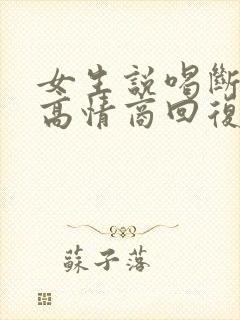 女生說喝斷
高情商回復
蘇子落